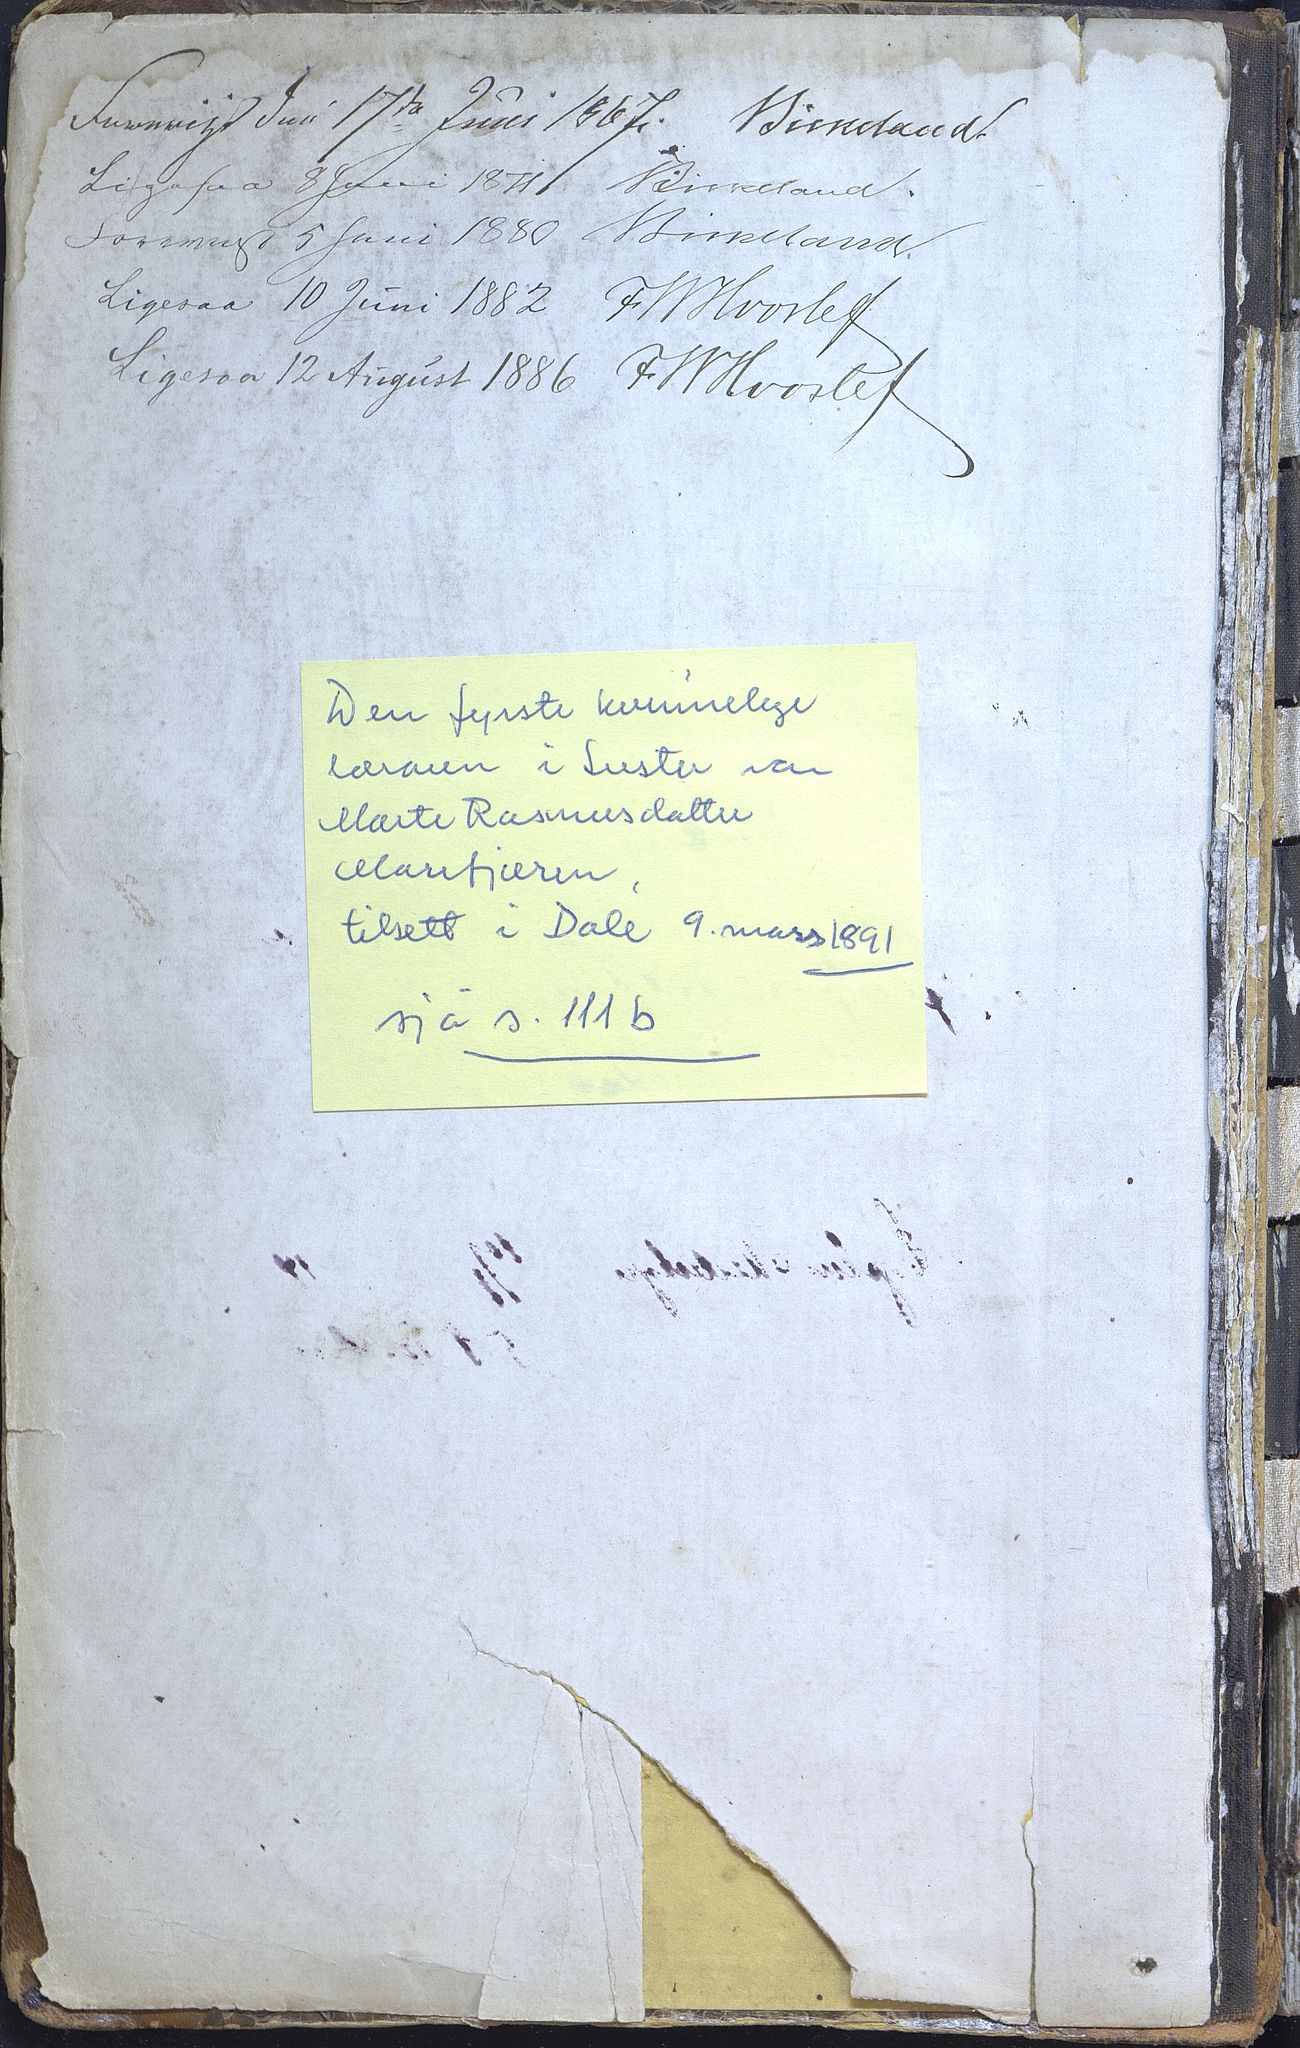 Foreviist den 17de Juni 1867. Birkeland.
Ligesaa 8 Juni 1871 Birkeland.
Foreviist 5 Juni 1880 Birkeland.
Ligesaa 10 Juni 1882 FWHvoslef
Ligesaa 12 August 1886 FWHvoslef
Den fyrste kvinnelege
læraren i Luster var
Marte Rasmusdatter
Marifjæren,
tilsett i Dale 9. mars 1891
sjå s. 111 b